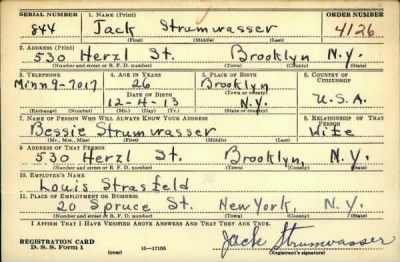 SERIAL NUMBER 1. NAME (Print) ORDER NUMBER
844 Jack Strumwasser 4126
(First) (Middle) (Last)
2. ADDRESS (Print)
530 Herzl St. Brooklyn N.Y.
(Number and street or R. F. D. number) (Town) (County) (State)
3. TELEPHONE 4. AGE IN YEARS 5. PLACE OF BIRTH 6. COUNTRY OF CITIZENSHIP
Minn 9-7017 26 Brooklyn
DATE OF BIRTH (Town or county)
12-4-13 N.Y. U.S.A.
(Exchange) (Number) (Mo.) (Day) (Yr.) (State or country)
7. NAME OF PERSON WHO WILL ALWAYS KNOW YOUR ADDRESS 8. RELATIONSHIP OF THAT PERSON
Bessie Strumwasser Wife
(Mr., Mrs., Miss) (First) (Middle) (Last)
9. ADDRESS OF THAT PERSON
530 Herzl St. Brooklyn, N.Y.
(Number and street or R. F. D. number) (Town) (County) (State)
10. EMPLOYER'S NAME
Louis Strasfeld
11. PLACE OF EMPLOYMENT OR BUSINESS
20 Spruce St. New York, N.Y.
(Number and street or R. F. D. number) (Town) (County) (State)
I AFFIRM THAT I HAVE VERIFIED ABOVE ANSWERS AND THAT THEY ARE TRUE.
REGISTRATION CARD
D. S. S. Form 1 (over) 16—17105
Jack Strumwasser
(Registrant's signature)